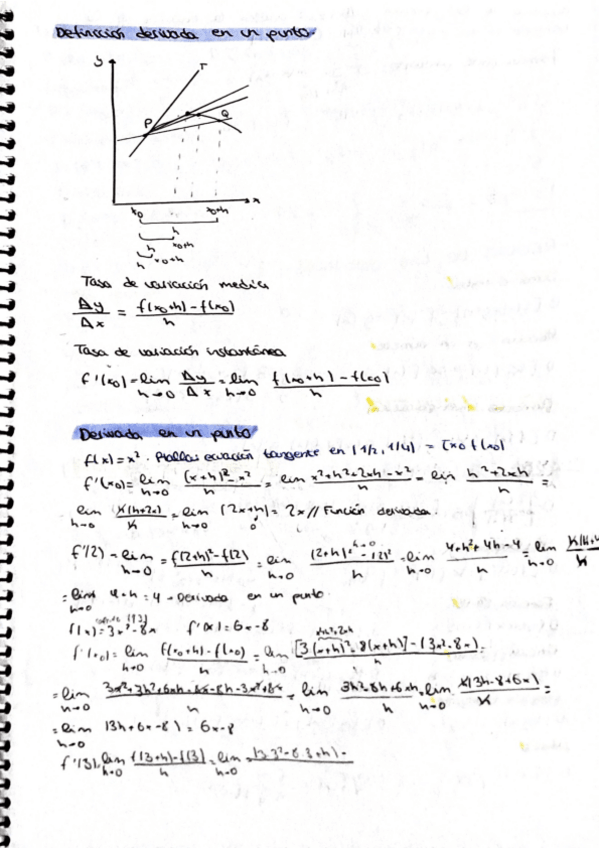 Definición derivada en un punto.
y
r
P
Q
x0
x0+h
x
h
x0+h
h
x0+h
h
Tasa de variación media
Δy/Δx = f(x0+h)-f(x0)/h
Tasa de variación instantánea
f'(x0)=lim h→0 Δy/Δx = lim h→0 f(x0+h)-f(x0)/h
Derivada en un punto
f(x)=x². Hallar ecuación tangente en (1/2, 1/4)
f'(x0)= lim h→0 (x+h)²-x²/h = lim x²+h²+2xh-x²/h = lim h²+2xh/h =
lim h→0 h(h+2x)/h = lim h→0 (2x+h) = 2x // Función derivada.
f'(2) = lim h→0 = f(2+h)-f(2)/h = lim h→0 (2+h)²-(2)²/h = lim h→0 4+h²+4h-4/h = lim h→0
= lim h→0 4+h = 4 → Derivada en un punto.
f(x)=3x²-8x f'(x)=6x-8
f'(x0)= lim h→0 f(x0+h)-f(x0)/h = lim h→0 [3(x+h)²-8(x+h)]-(3x²-8x)/h =
= lim h→0 3x²+3h²+6xh-8x-8h-3x²+8x/h = lim h→0 3h²-8h+6xh/h lim h→0 h(3h-8+6x)/h =
= lim h→0 (3h+6x-8) = 6x-8
f'(3) lim h→0 f(3+h)-f(3)/h = lim h→0